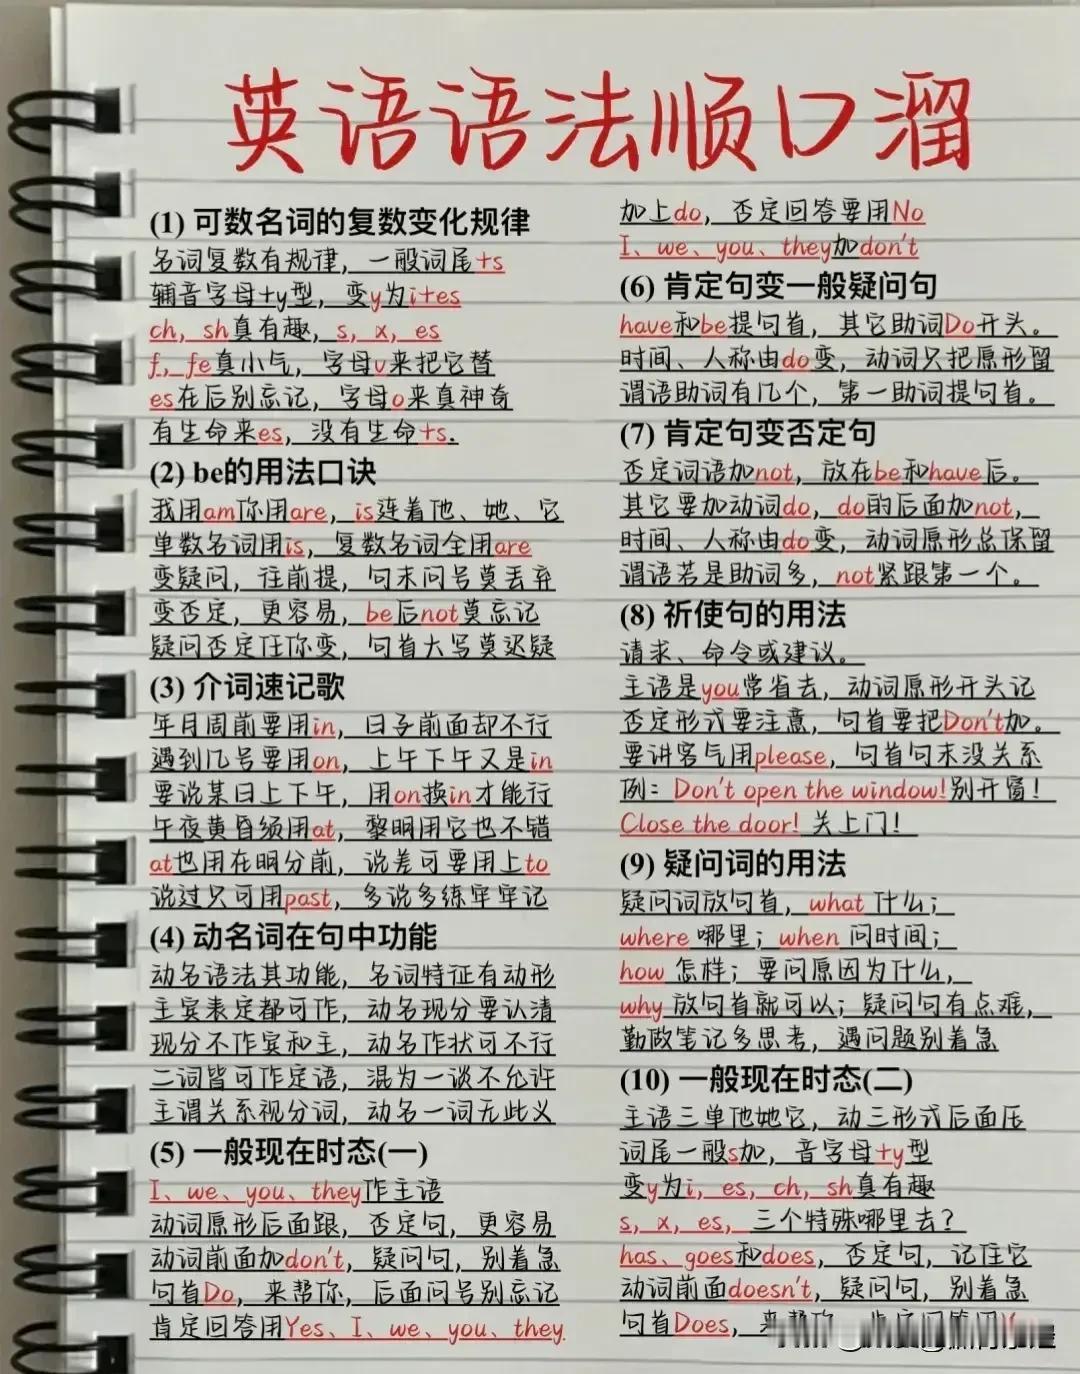 英语语法顺口溜
(1) 可数名词的复数变化规律
名词复数有规律，一般词尾+s
辅音字母+y型，变y为i+es
ch，sh真有趣，s，x，es
f，fe真小气，字母v来把它替
es在后别忘记，字母o来真神奇
有生命来es，没有生命+s.
(2) be的用法口诀
我用am你用are，is连着他、她、它
单数名词用is，复数名词全用are
变疑问，往前提，句末问号莫丢弃
变否定，更容易，be后not莫忘记
疑问否定任你变，句首大写莫迟疑
(3) 介词速记歌
年月周前要用in，日子前面却不行
遇到几号要用on，上午下午又是in
要说某日上下午，用on换in才能行
午夜黄昏须用at，黎明用它也不错
at也用在明分前，说差可要用上to
说过只可用past，多说多练牢牢记
(4) 动名词在句中功能
动名语法其功能，名词特征有动形
主宾表定都可作，动名现分要认清
现分不作宾和主，动名作状可不行
二词皆可作定语，混为一谈不允许
主谓关系视分词，动名一词无此义
(5) 一般现在时态(一)
I、we、you、they作主语
动词原形后面跟，否定句，更容易
动词前面加don't，疑问句，别着急
句首Do，来帮你，后面问号别忘记
肯定回答用Yes、I、we、you、they
加上do，否定回答要用No
I、we、you、they加don't
(6) 肯定句变一般疑问句
have和be提句首，其它助词Do开头。
时间、人称由do变，动词只把原形留
谓语助词有几个，第一助词提句首。
(7) 肯定句变否定句
否定词语加not，放在be和have后。
其它要加动词do，do的后面加not，
时间、人称由do变，动词原形总保留
谓语若是助词多，not紧跟第一个。
(8) 祈使句的用法
请求、命令或建议。
主语是you常省去，动词原形开头记
否定形式要注意，句首要把Don't加。
要讲客气用please，句首句末没关系
例：Don't open the window!别开窗！
Close the door! 关上门！
(9) 疑问词的用法
疑问词放句首，what 什么；
where 哪里；when 问时间；
how 怎样；要问原因为什么，
why 放句首就可以；疑问句有点难，
勤做笔记多思考，遇问题别着急
(10) 一般现在时态(二)
主语三单他她它，动三形式后面压
词尾一般s加，音字母+y型
变y为i，es，ch，sh真有趣
s，x，es，三个特殊哪里去？
has、goes和does，否定句，记住它
动词前面doesn't，疑问句，别着急
句首Does，来帮你，肯定回答用